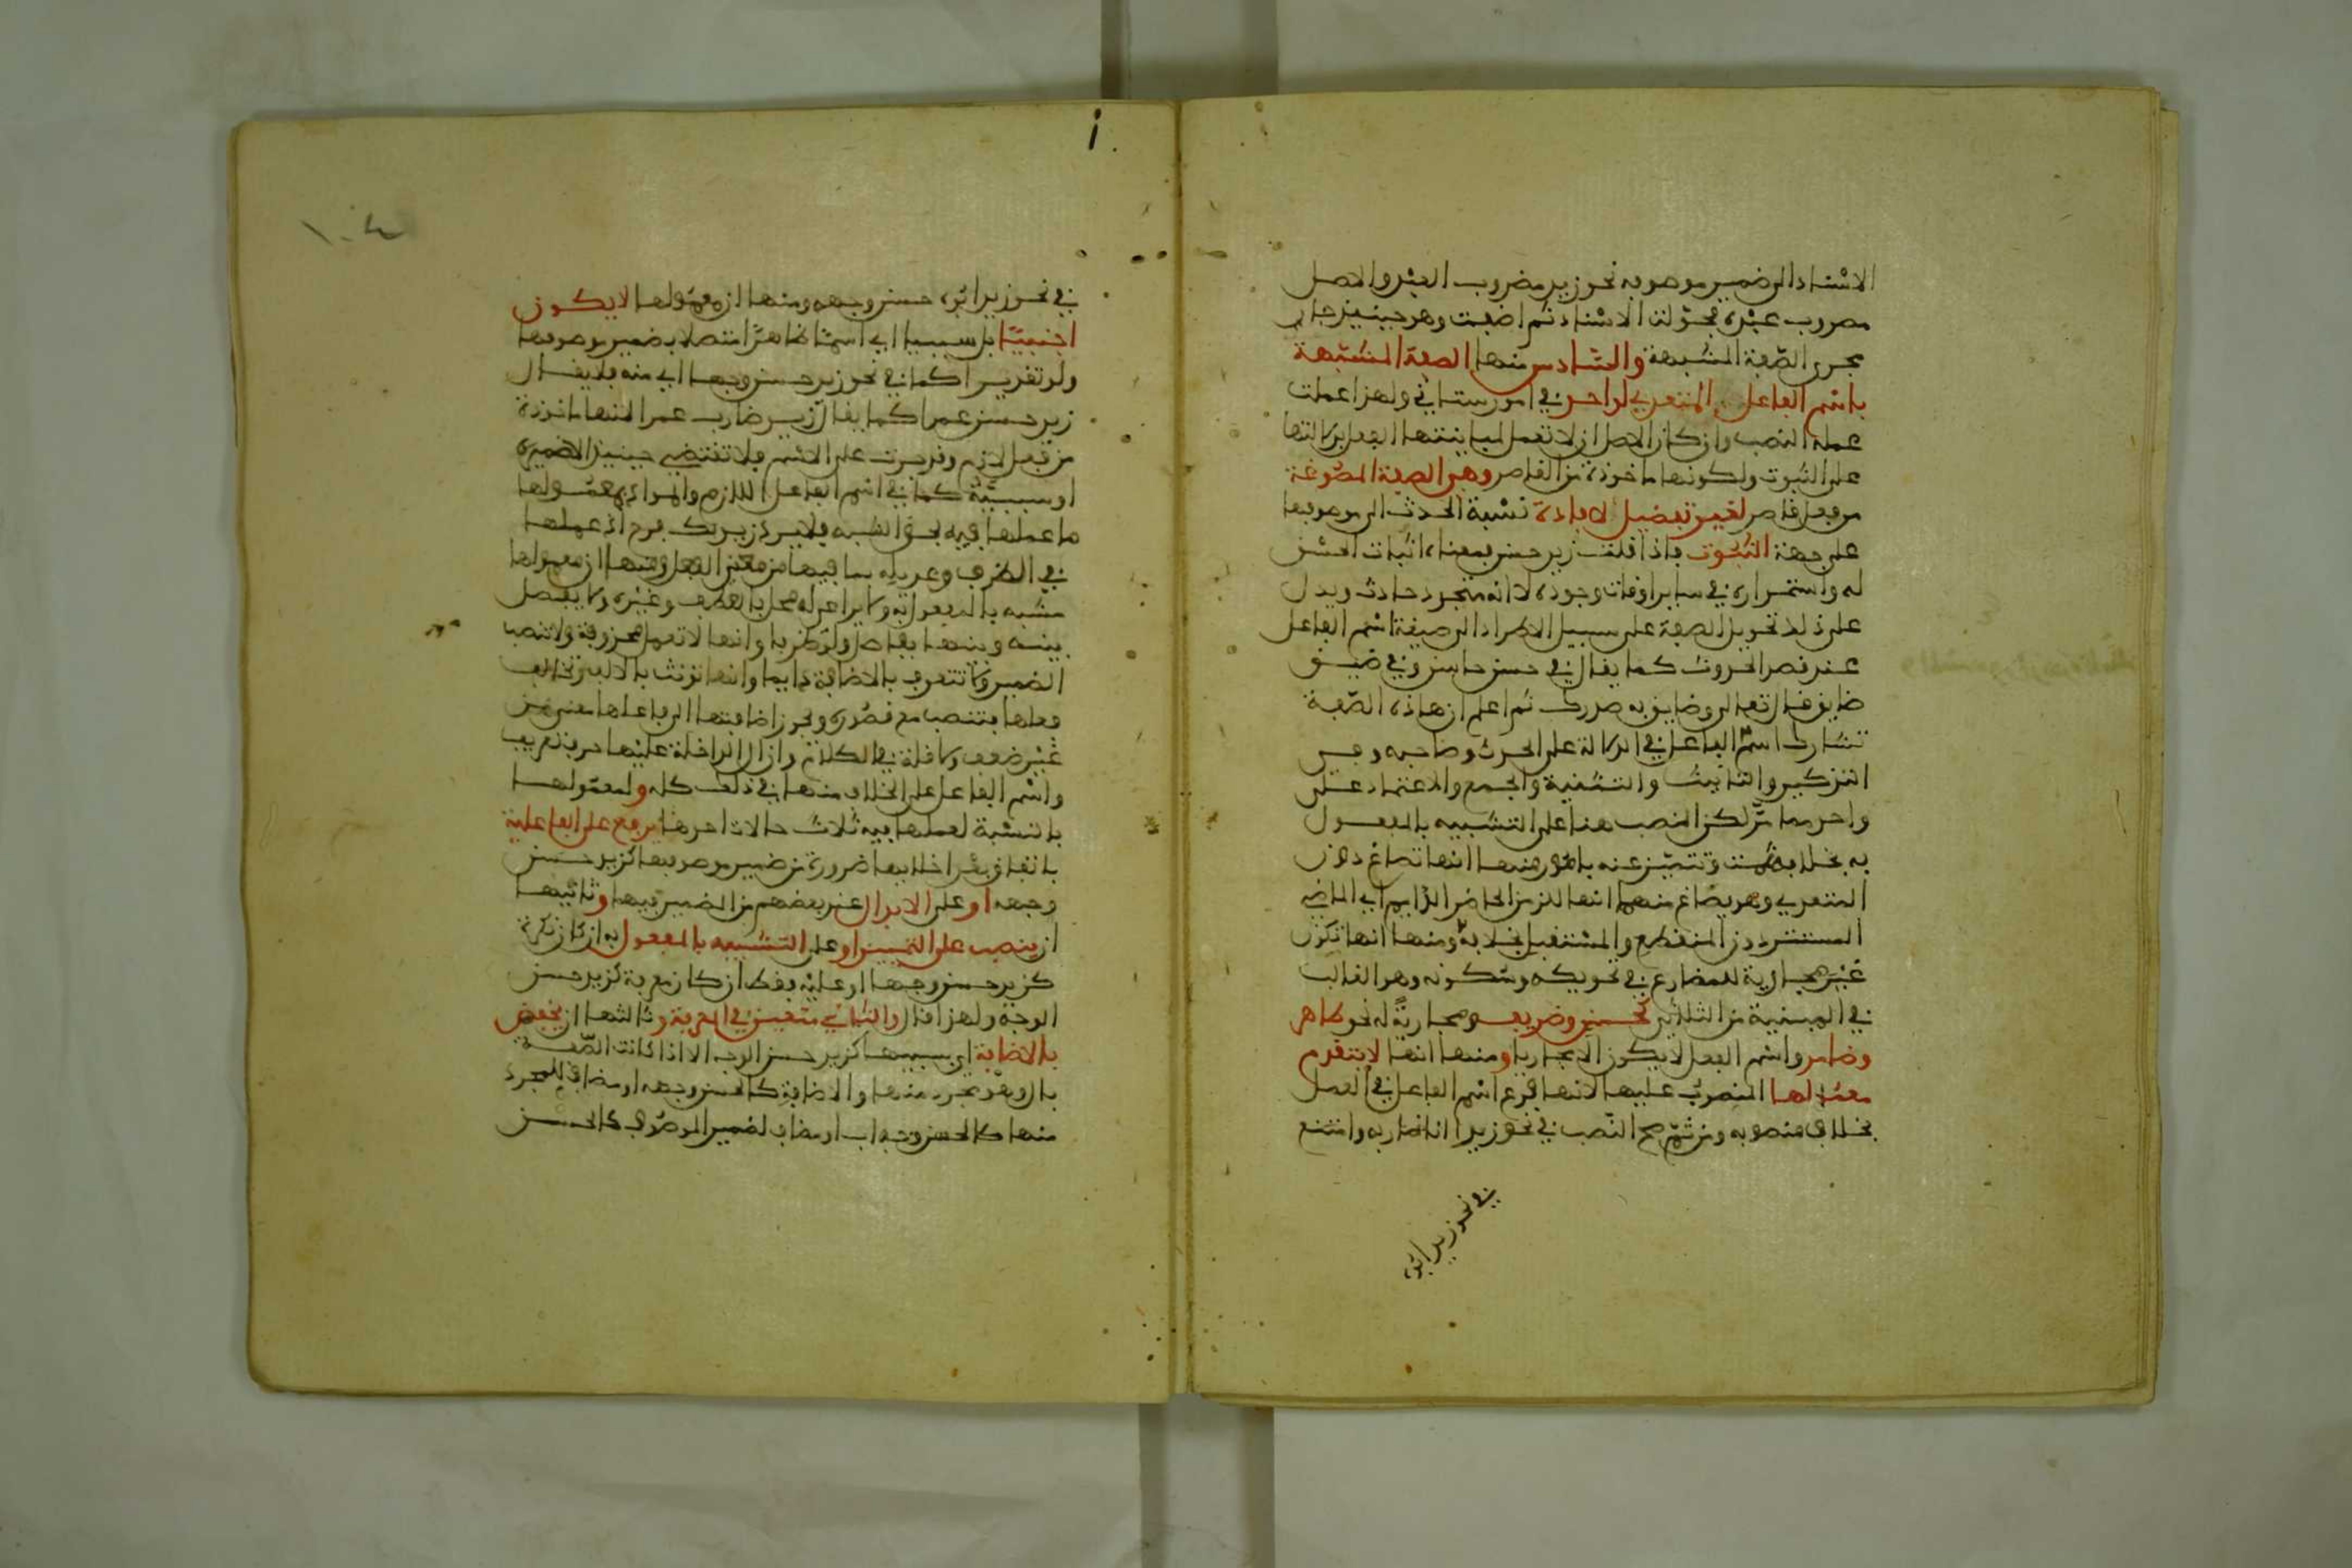 الاسناد الى ضمير موصوفه نحو زيد مضروب العبد والاصل
مضروب عبده فحولت الاسناد ثم اضيفت وهو حينئذ جار
مجرى الصفة المشبهة والسادس منها الصفة المشبهة
باسم الفاعل المتعدي لواحد في امور ستاتي ولهذا عملت
عمله النصب وان كان الاصل ان لا تعمل لمباينتها الفعل بدلالتها
على الثبوت ولكونها ماخوذة من القاصر وهي الصفة المصوغة
من فعل قاصر لغير تفضيل لافادة نسبة الحدث الى موصوفها
على جهة الثبوت فاذا قلت زيد حسن فمعناه اثبات الحسن
له واستمراره في ساير اوقات وجوده لا انه متجدد حادث ويدل
على ذلك تحويل الصفة على سبيل الاطراد الى صيغة اسم الفاعل
عند قصد الحدوث كما يقال في حسن حاسن وفي ضيق
ضايق قال تعالى وضايق به صدرك ثم اعلم ان هاذه الصفة
تشارك اسم الفاعل في الدلالة على الحدث وصاحبه وفي
التذكير والتانيث والتثنية والجمع والاعتماد على
واحد مما مر لكن النصب هنا على التشبيه بالمفعول
به بخلافه ثمت وتتميز عنه بامور منها انها تصاغ من اللازم دون
المتعدي وهو يصاغ منهما انها للزمن الحاضر الدايم اي الماضي
المستمر دون المنقطع والمستقبل بخلافه ومنها انها تكون
غير مجارية للمضارع في تحريكه وسكونه وهو الغالب
في المبنية من الثلاثي كحسن وظريف ومجارية له نحو طاهر
وضامر واسم الفعل لا يكون الا مجاريا ومنها انها لا يتقدم
معمولها المنصوب عليها لانها فرع اسم الفاعل في العمل
بخلاف منصوبه ومن ثم صح النصب في نحو زيدا انا ضاربه وامتنع
في نحو زيد ابوه
١٠٤
في نحو زيد ابوه حسن وجهه ومنها ان معمولها لا يكون
اجنبيا بل سببيا اي اسما ظاهرا متصلا بضمير موصوفها
ولو تقديرا كما في نحو زيد حسن وجها اي منه فلا يقال
زيد حسن عمرا كما يقال زيد ضارب عمرا لانها ماخوذة
من فعل لازم وقد جرت على الاسم فلا تقتضي حينئذ الا ضميره
او سببيه كما في اسم الفاعل اللازم والمراد بمعمولها
ما عملها فيه بحق الشبه فلا يرد زيد بك فرح اذ عملها
في الظرف وعديله بما فيها من معنى الفعل ومنها ان معمولها
مشبه بالمفعول به ولا يراعى له محل بالعطف وغيره ولا يفصل
بينه وبينها بفاصل ولو ظرفا وانها لا تعمل محذوفة ولا تنصب
الضمير ولا تتعرف بالاضافة دايما وانها تؤنث بالالف وتخالف
فعلها فتنصب مع قصوره وتجوز اضافتها الى فاعلها معنى من
غير ضعف ولا قلة في الكلام وان ال الداخلة عليها حرف تعريف
واسم الفاعل على الخلاف منها في ذلك كله ولمعمولها
بالنسبة لعملها فيه ثلاث حالات احدها يرفع على الفاعلية
باتفاق بعد اخلايها ضرورة من ضمير موصوفها كزيد حسن
وجهه او على الابدال عند بعضهم من الضمير فيها وثانيها
ان ينصب على التمييز او على التشبيه بالمفعول به ان كان نكرة
كزيد حسن وجها او عليه فقط ان كان معرفة كزيد حسن
الوجه ولهذا قال والثاني متعين في المعرفة وثالثها ان يخفض
بالاضافة اي بسببها كزيد حسن الوجه الا اذا كانت الصفة
بال وهو مجرد منها والاضافة كالحسن وجهه او مضاف للمجرد
منها كالحسن وجه اب او مضاف لضمير الموصوف كالحسن